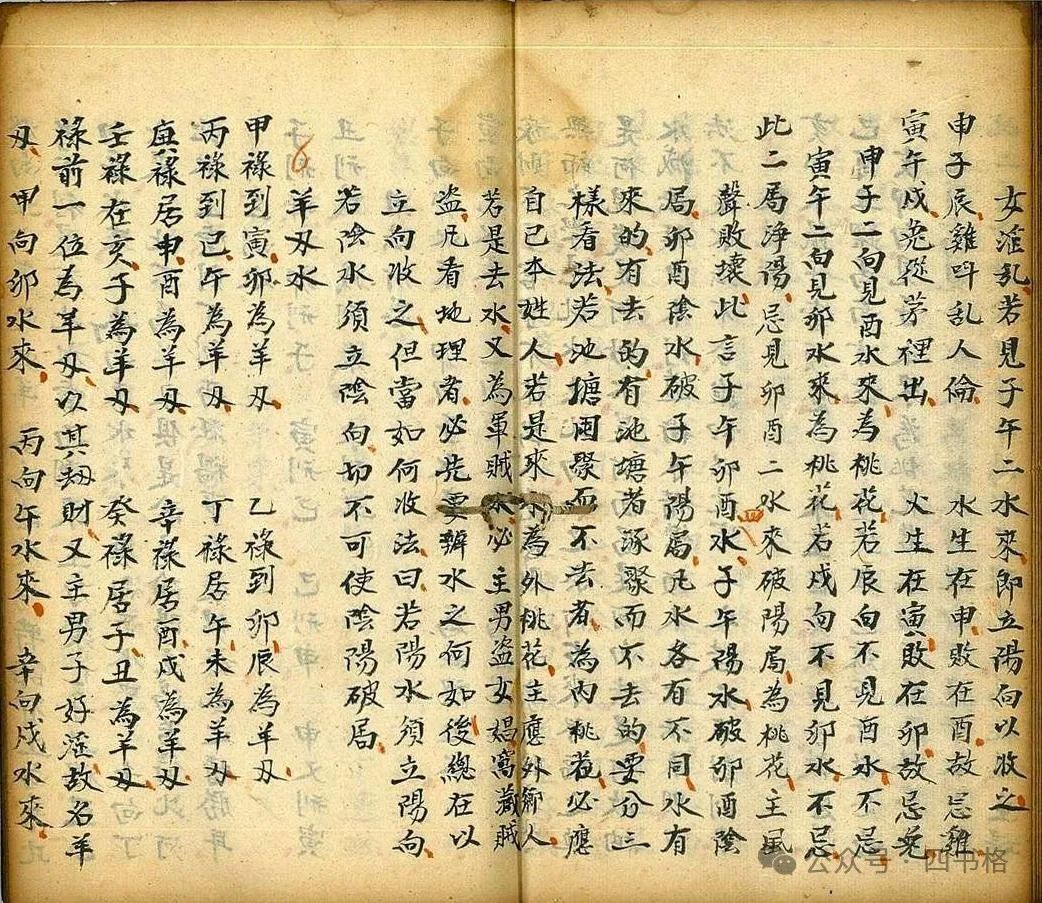 女淫乱若見子午二水來即立陽向以收之
申子辰雞呌乱人倫　水生在申敗在酉故忌雞
寅午戌兎從茅裡出　火生在寅敗在卯故忌兎
申子二向見酉水來為桃花若辰向不見酉水不忌
寅午二向見卯水來為桃花若戌向不見卯水不忌
此二局淨陽忌見卯酉二水來破陽局為桃花主風
聲敗壞此言子午卯酉水子午陽水破卯酉陰
局卯酉陰水破子午陽局凡水各有不同水有
來的有去的有池塘者逐聚而不去的要分三
樣看法若池塘囤聚而不去者為內桃花必應
自己本姓人若是來水為外桃花主應外鄉人
若是去水又為軍賊水必主男盜女娼窩藏賊
盜凡看地理者必先要辦水之何如後總在以
立向收之但當如何收法曰若陽水須立陽向
若陰水須立陰向切不可使陰陽破局
羊刄水
甲祿到寅卯為羊刄　乙祿到卯辰為羊刄
丙祿到巳午為羊刄　丁祿居午未為羊刄
庚祿居申酉為羊刄　辛祿居酉戌為羊刄
壬祿在亥子為羊刄　癸祿居子丑為羊刄
祿前一位為羊刄以其刼財又主男子好淫故名羊
刄甲向卯水來　丙向午水來　辛向戌水來
公众号·四书格